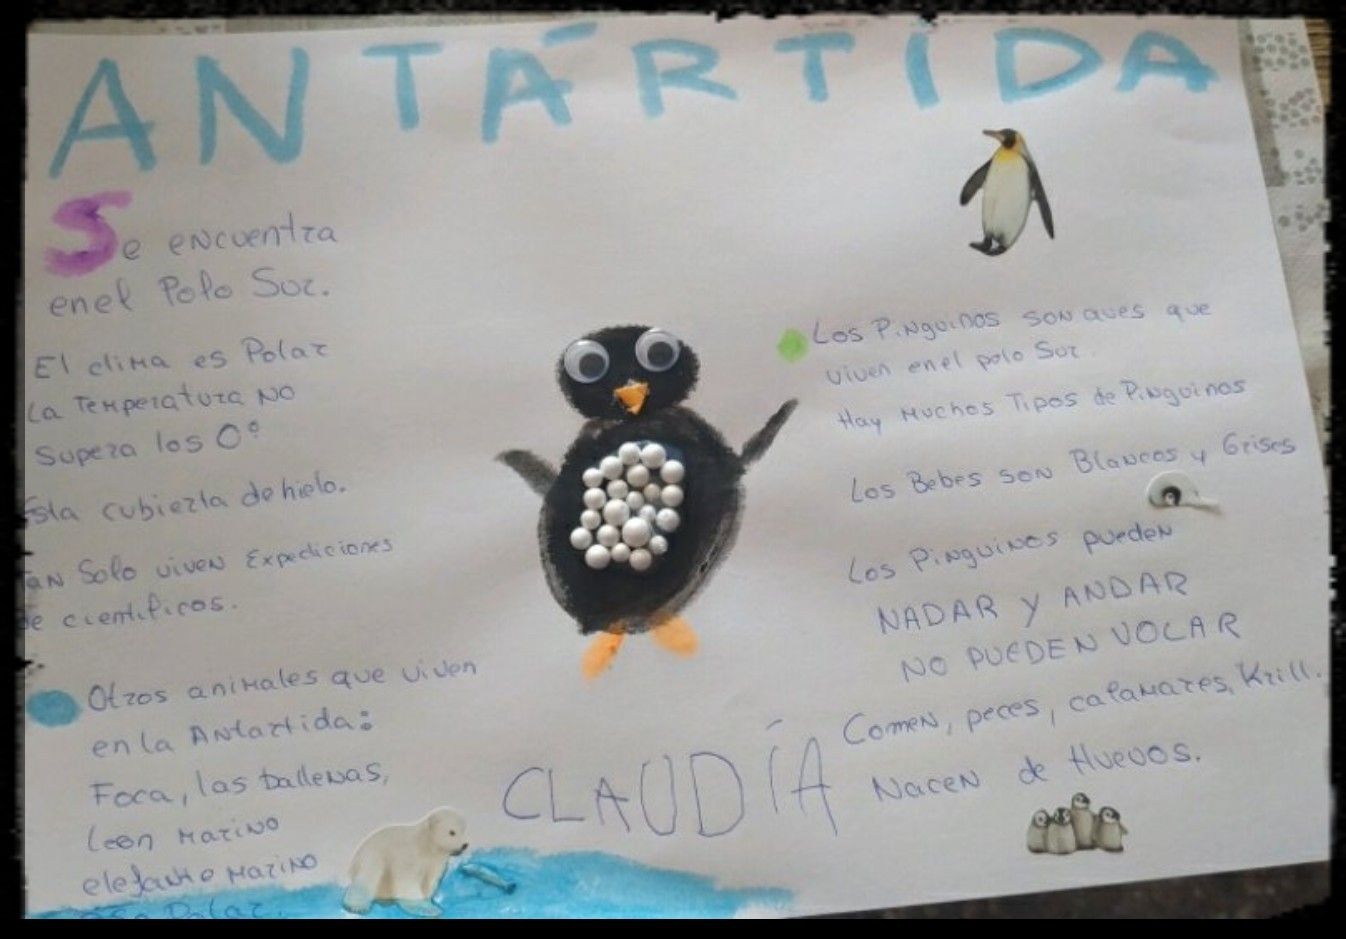 ANTÁRTIDA
Se encuentra
en el Polo Sur.
El clima es Polar
La Temperatura NO
supera los 0º
Esta cubierta de hielo.
Tan Solo viven Expediciones
de cientificos.
Otros animales que viven
en la Antartida:
Foca, las ballenas,
leon marino
elefante marino
oso Polar.
Los Pinguinos son aves que
viven en el polo Sur.
Hay muchos Tipos de Pinguinos
Los Bebes son Blancos y Grises
Los Pinguinos pueden
NADAR Y ANDAR
NO PUEDEN VOLAR
Comen, peces, calamares, Krill.
Nacen de Huevos.
CLAUDÍA